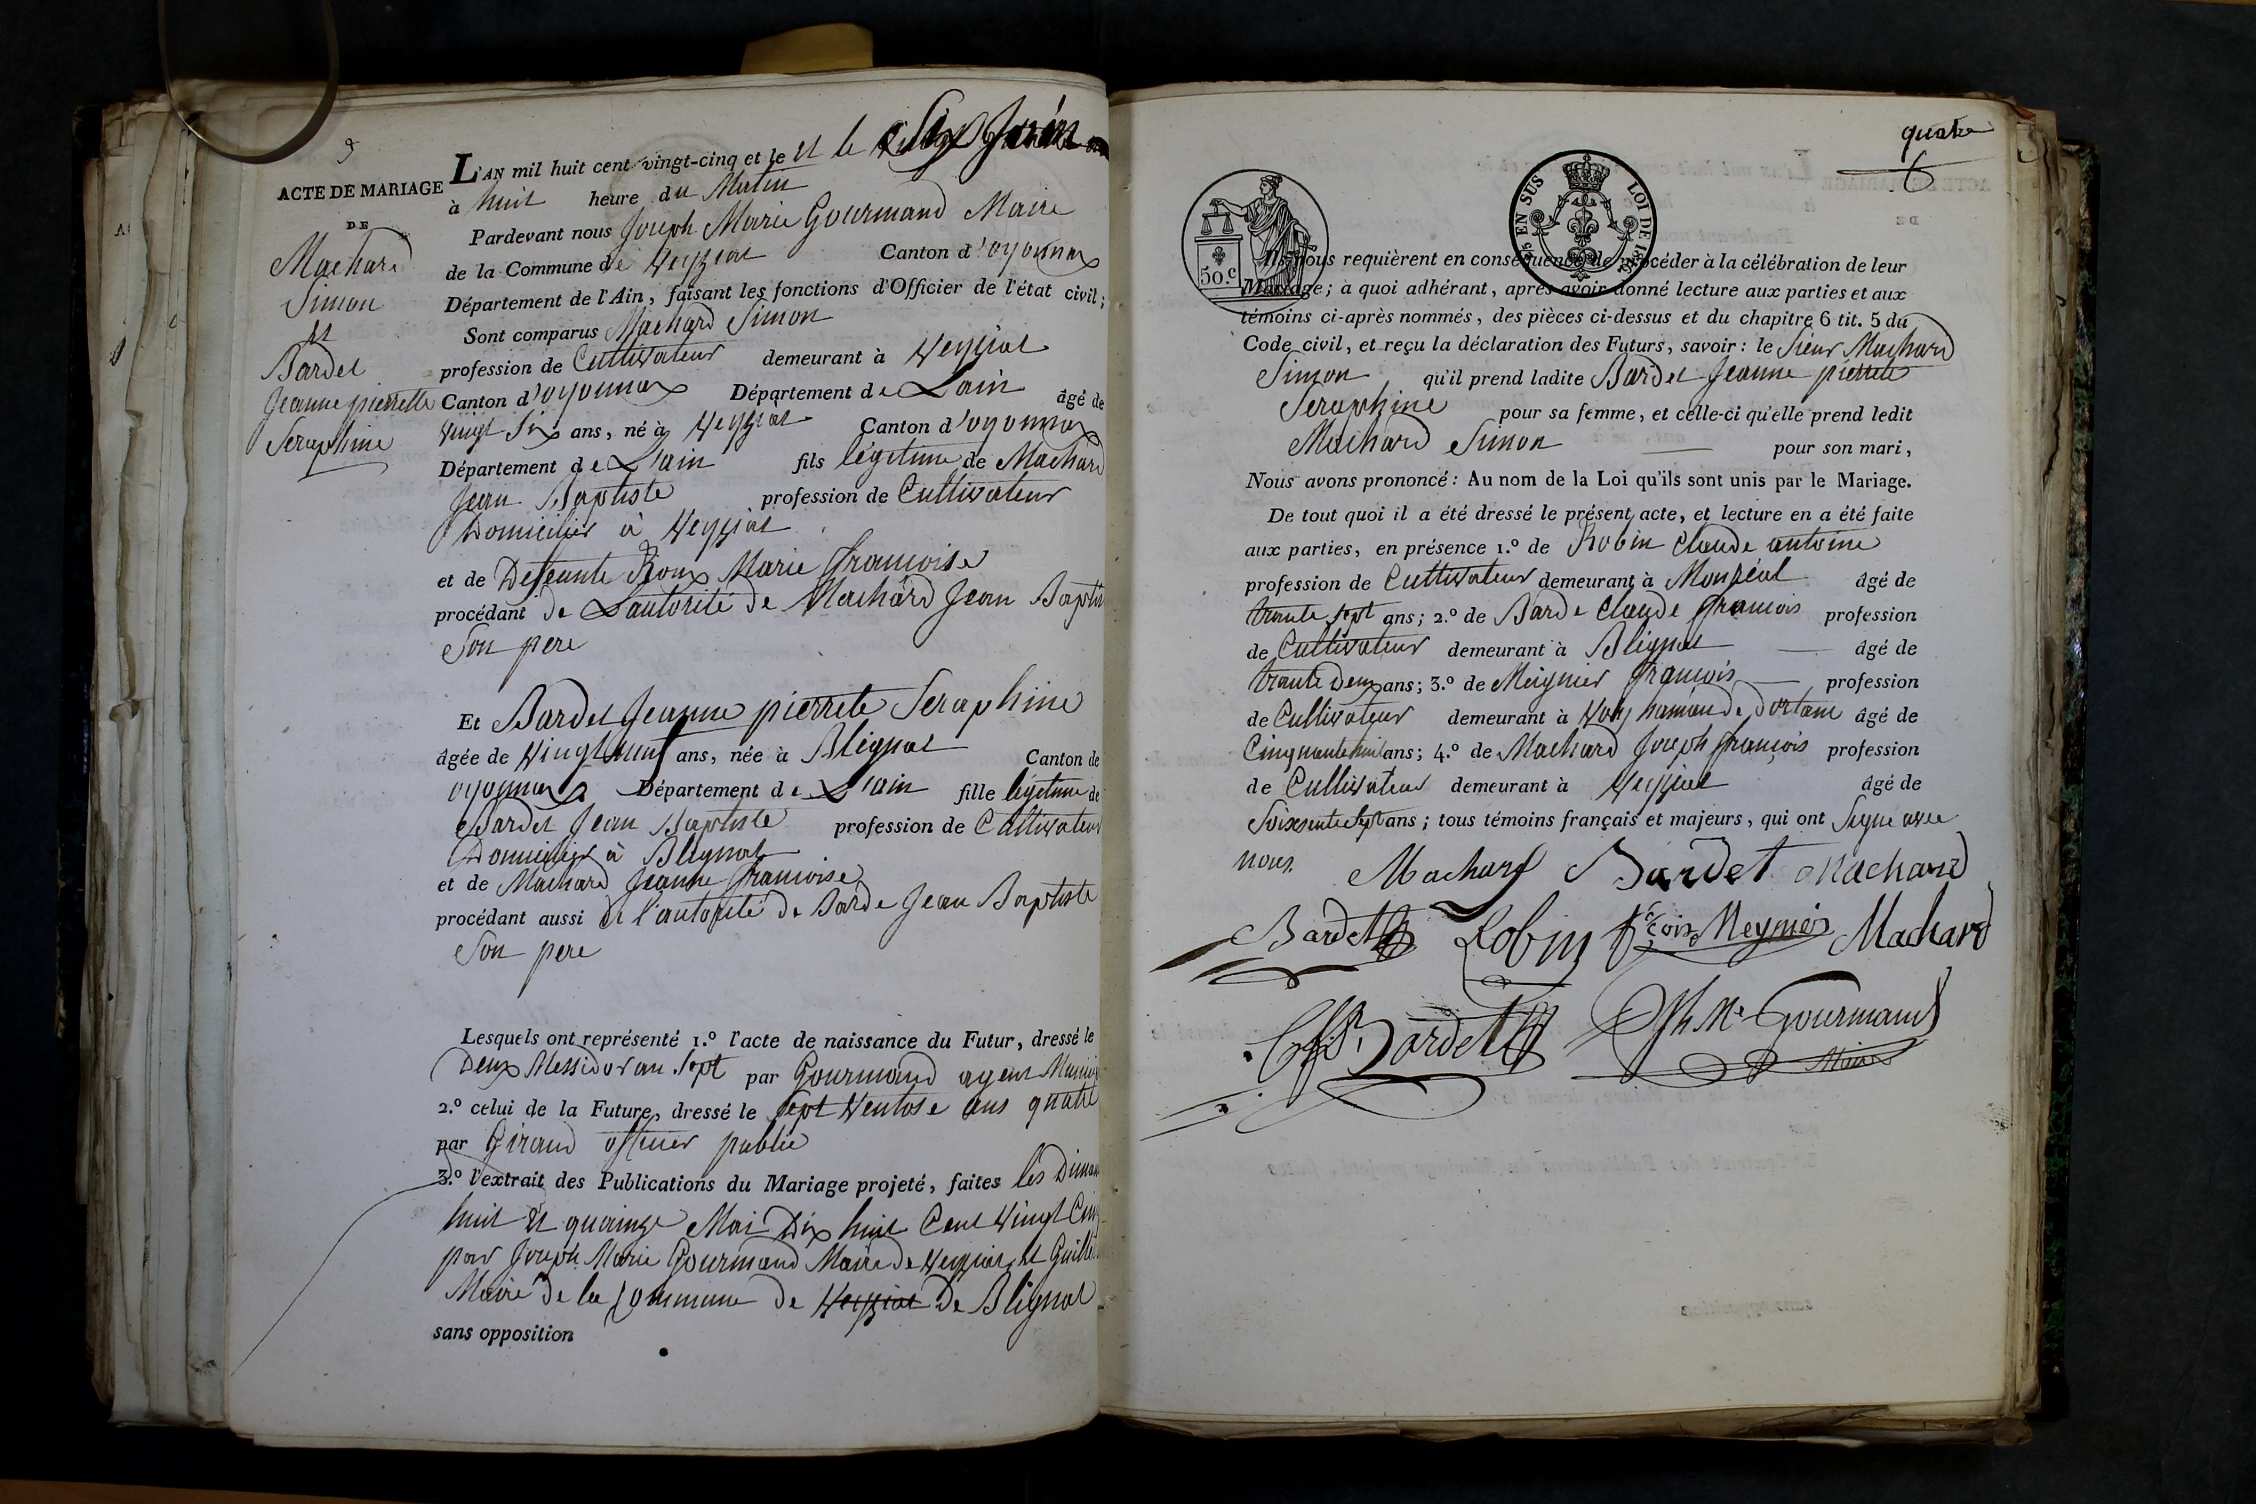 3
L'AN mil huit cent vingt-cinq et le et le Six Juin
ACTE DE MARIAGE
DE
Machard
Simon
et
Bardet
Jeanne pierrette
Seraphine
à huit heure du Matin
Pardevant nous Joseph Marie Gourmand Maire
de la Commune de Veyziat Canton d'oyonnax
Département de l'Ain, faisant les fonctions d'Officier de l'état civil;
Sont comparus Machard Simon
profession de Cultivateur demeurant à Veyziat
Canton d'oyonnax Département de Lain âgé de
vingt Six ans, né à Veyziat Canton d'oyonnax
Département de L'ain fils légitime de Machard
Jean Baptiste profession de Cultivateur
Domicilier à Veyziat
et de Defeunte Roux Marie francoise
procédant de Lautorité de Machard Jean Baptis
Son pere
Et Bardet Jeanne pierrete Seraphine
âgée de Vingt neuf ans, née à Blégnat Canton de
oyonnax Département de L'ain fille légitime de
Bardet Jean Baptiste profession de Cultivateur
Domicilier à Blegnat
et de Machard Jeanne francoise
procédant aussi de l'autorité de Barde Jean Baptiste
Son pere
Lesquels ont représenté 1.º l'acte de naissance du Futur, dressé le
Deux Messidor an Sept par Gourmand agent Munici
2.º celui de la Future, dressé le Sept Ventose ans quatre
par Giraud officier public
3.º l'extrait des Publications du Mariage projeté, faites les Diman
huit et quainze Mai Dix huit Cent Vingt Cinq
par Joseph Marie Gourmand Maire de Veyziat et Guille
Maire de la Commune de Veyziat De Blignat
sans opposition
quatre
50.c
25 EN SUS LOI DE 18
Ils nous requièrent en conséquence de procéder à la célébration de leur
Mariage; à quoi adhérant, après avoir donné lecture aux parties et aux
témoins ci-après nommés, des pièces ci-dessus et du chapitre 6 tit. 5 du
Code civil, et reçu la déclaration des Futurs, savoir: le Sieur Machard
Simon qu'il prend ladite Bardet Jeanne pierrete
Seraphine pour sa femme, et celle-ci qu'elle prend ledit
Machard Simon pour son mari,
Nous avons prononcé: Au nom de la Loi qu'ils sont unis par le Mariage.
De tout quoi il a été dressé le présent acte, et lecture en a été faite
aux parties, en présence 1.º de Robin Claude antoine
profession de Cultivateur demeurant à Monréal âgé de
trante sept ans; 2.º de Barde Claude francois profession
de Cultivateur demeurant à Blignat âgé de
trante Deux ans; 3.º de Meignier francois profession
de Cultivateur demeurant à hamau de Dortant âgé de
Cinquante huit ans; 4.º de Machard Joseph françois profession
de Cultivateur demeurant à Veyziat âgé de
Soixsente Sept ans; tous témoins français et majeurs, qui ont Signe avec
nous.
Machard Bardet Machard
Bardet Robin fçois Meynier Machard
Cf Bardet Jph Me Gourmand
Maire